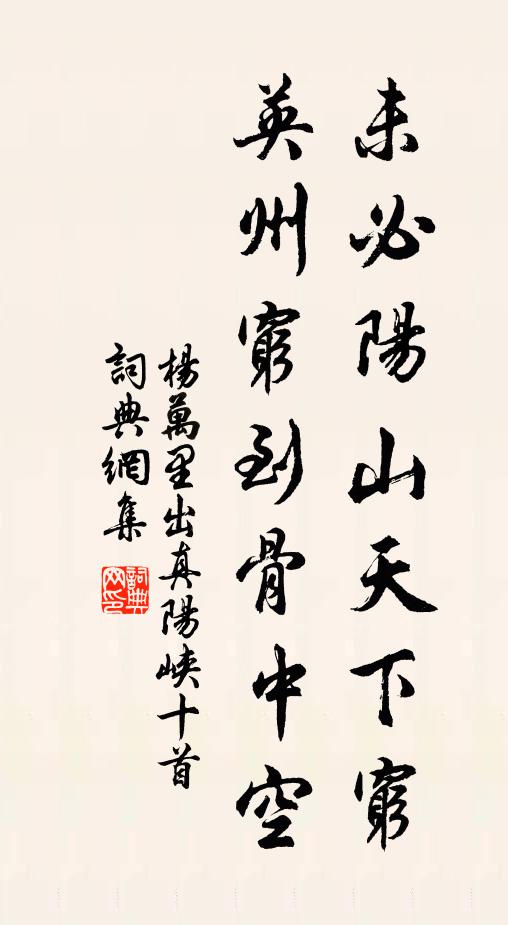 未必陽山天下窮
英州窮到骨中空
楊萬里出真陽峽十首
詞典網集
詞典網印